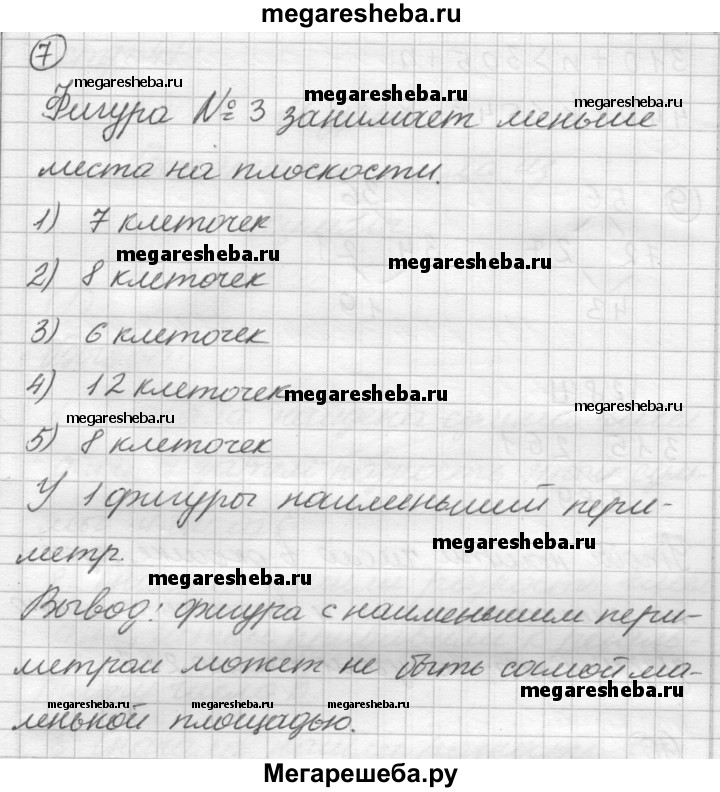 megaresheba.ru
7
megaresheba.ru
megaresheba.ru
megaresheba.ru
Фигура № 3 занимает меньше
места на плоскости.
1) 7 клеточек
megaresheba.ru
megaresheba.ru
2) 8 клеточек
3) 6 клеточек
4) 12 клеточек
megaresheba.ru
megaresheba.ru
megaresheba.ru
5) 8 клеточек
У 1 фигуры наименьший пери-
метр.
megaresheba.ru
megaresheba.ru
Вывод: фигура с наименьшим пери-
метром может не быть самой ма-
megaresheba.ru
megaresheba.ru
megaresheba.ru
megaresheba.ru
ленькой площадью.
Мегарешеба.ру